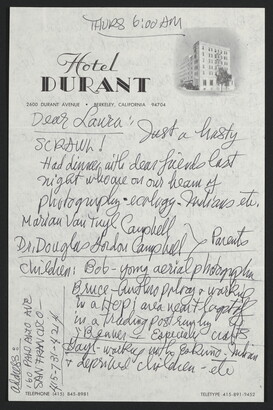 THURS 6:00 AM
Hotel
DURANT
2600 DURANT AVENUE • BERKELEY, CALIFORNIA 94704
Dear Laura: Just a hasty
SCRAWL!
Had dinner with dear friends last
night who are on our beam of
photography - ecology - Indians etc.
Marian Van Tuyl Campbell
Dr. Douglas Gordon Campbell Parents
Children: Bob - young aerial photographer
Bruce - working
in a Hopi area near
in a Trading Post
Especially crafts
Gayl - working with Eskimo - Indian
+ deprived children - etc
Address:
160 PALO ALTO AVE
SAN FRANCISCO
415-731-4224
TELEPHONE (415) 845-8981
TELETYPE 415 891-9452